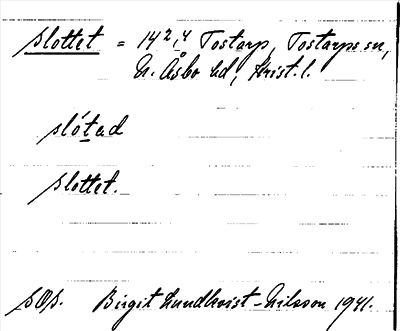 Slottet = 14 2,4 Tostarp, Tostarps sn,
N. Åsbo hd, Krist. l.
slótad
Slottet.
SOS. Birgit Lundkvist-Nilsson 1941.